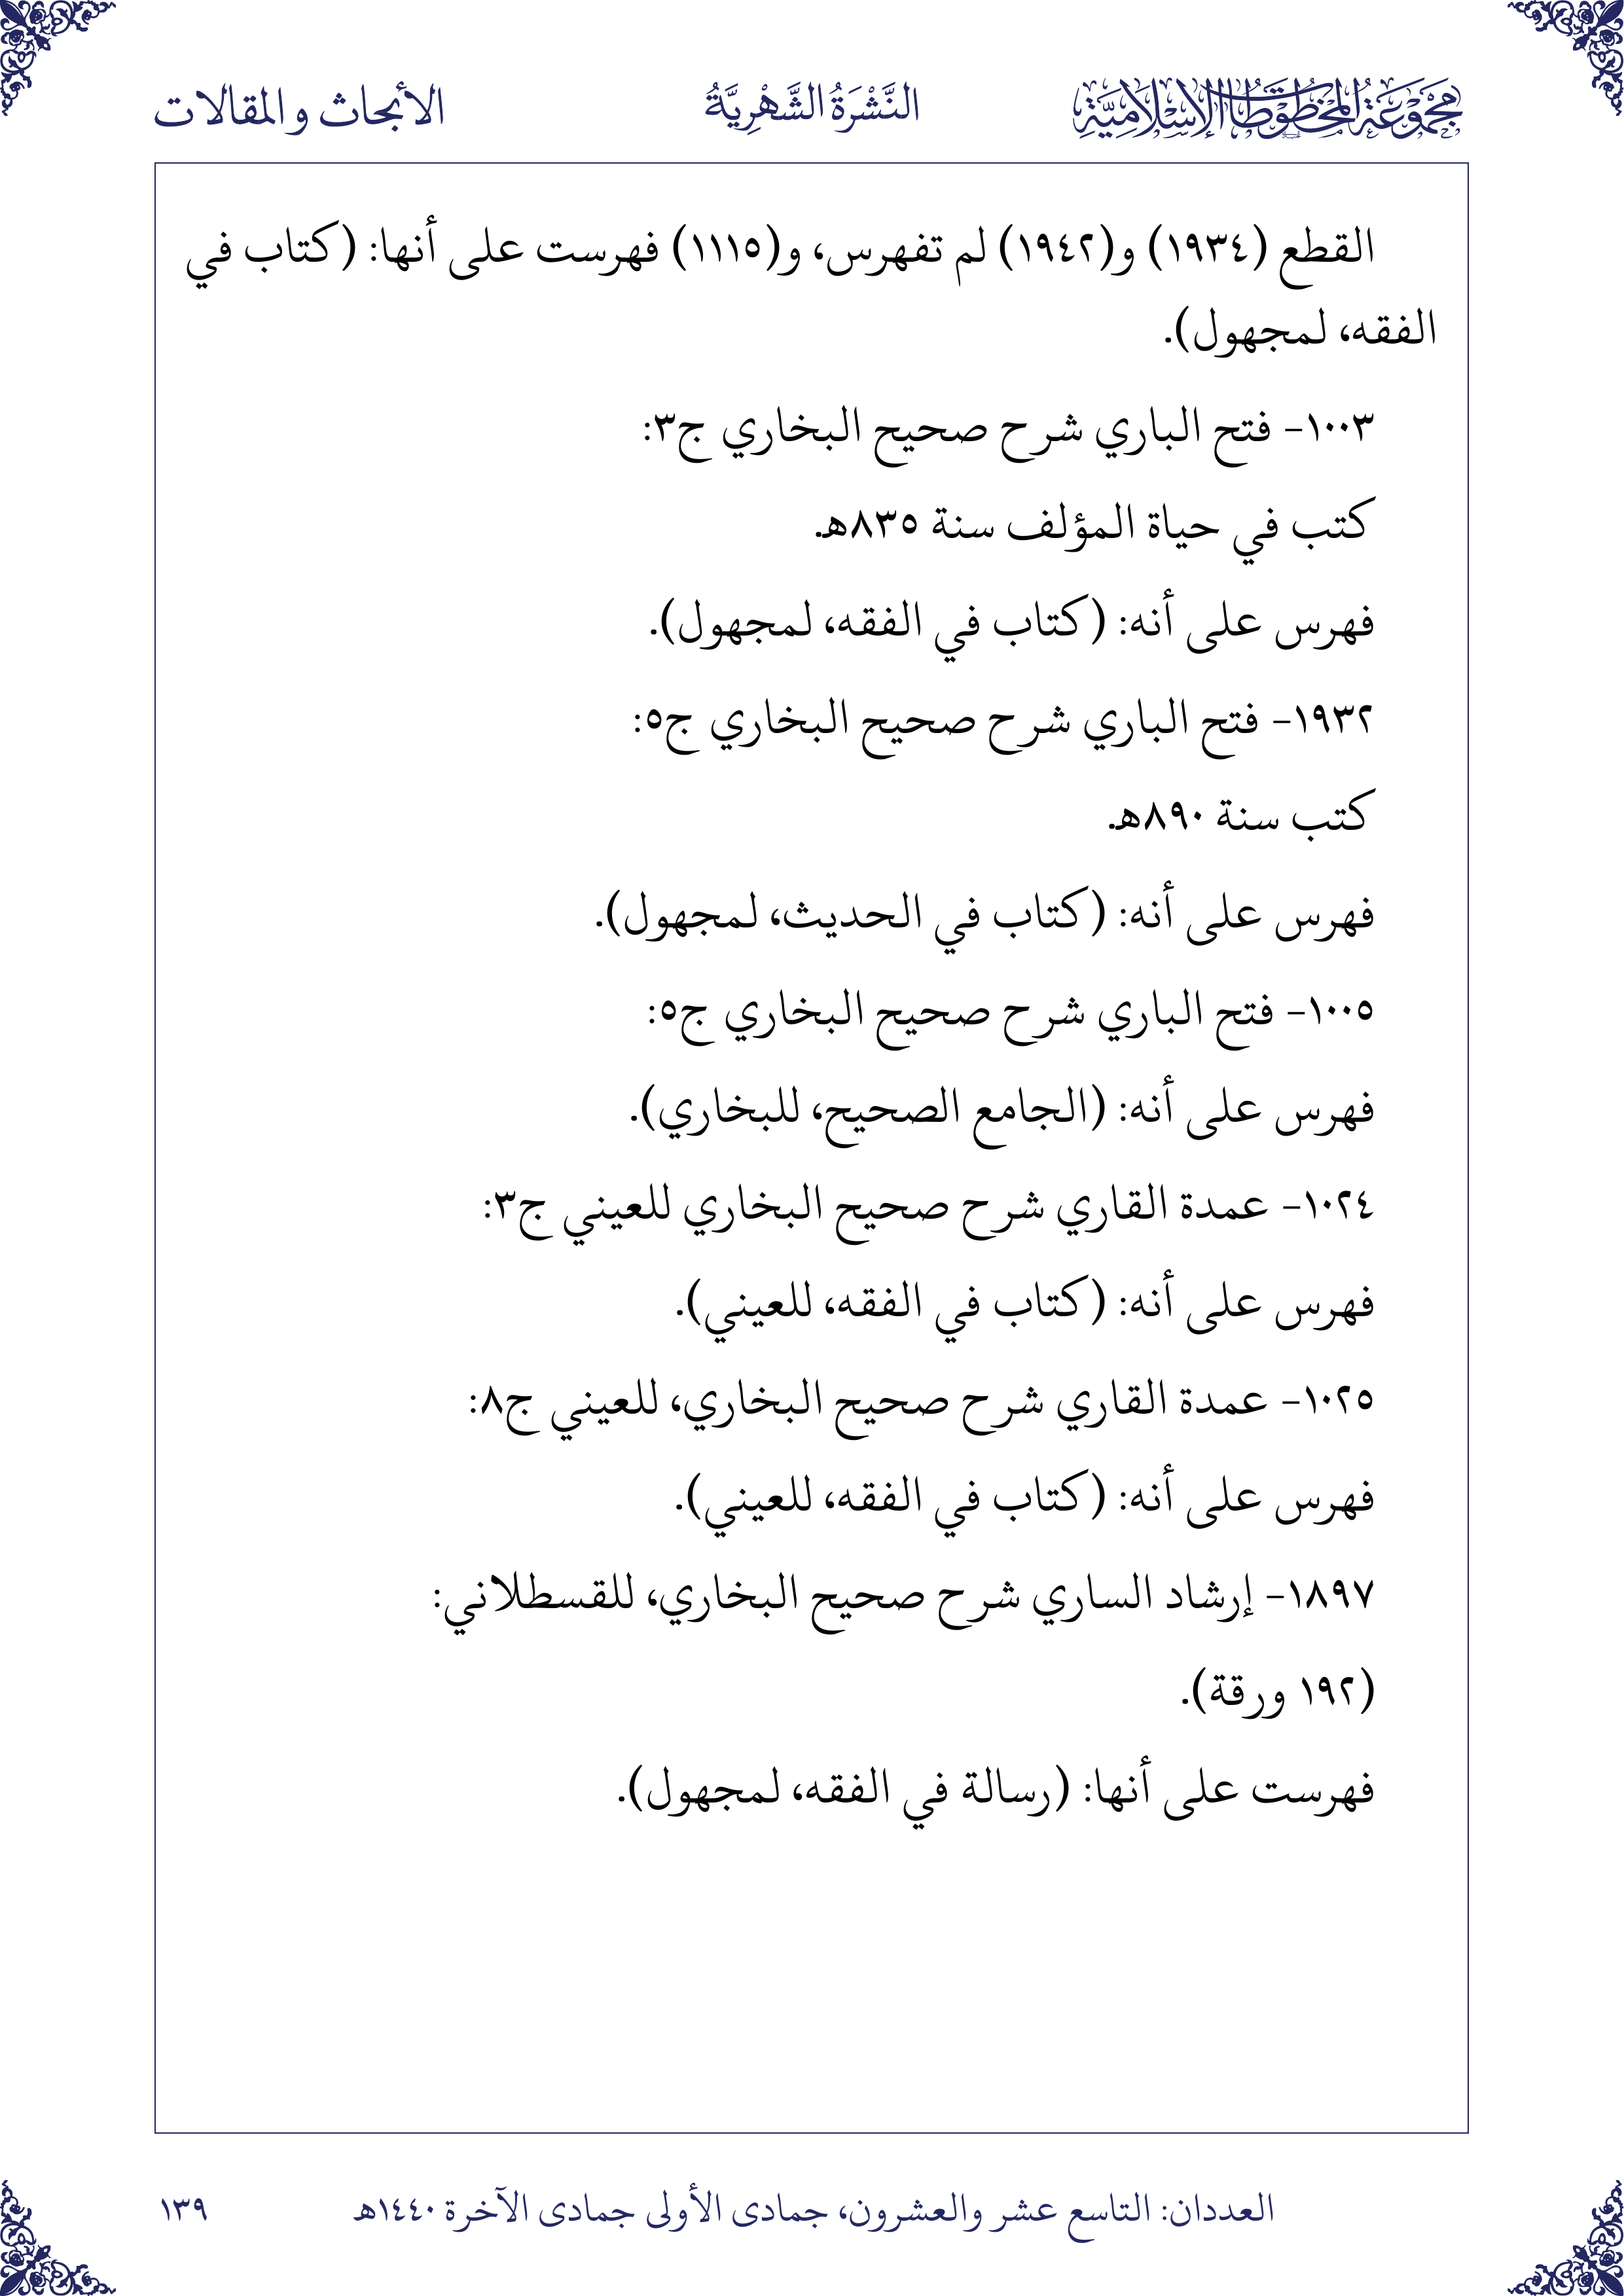 مَجْمُوعَةُ المَخْطُوطَاتِ الإِسْلَامِيَّةِ
النَّشْرَةُ الشَّهْرِيَّةُ
الأبحاث والمقالات
القطع (١٩٣٤) و(١٩٤٢) لم تفهرس، و(١١١٥) فهرست على أنها: (كتاب في
الفقه، لمجهول).
١٠٠٣- فتح الباري شرح صحيح البخاري ج٣:
كتب في حياة المؤلف سنة ٨٣٥هـ.
فهرس على أنه: (كتاب في الفقه، لمجهول).
١٩٣٢- فتح الباري شرح صحيح البخاري ج٥:
كتب سنة ٨٩٠هـ.
فهرس على أنه: (كتاب في الحديث، لمجهول).
١٠٠٥- فتح الباري شرح صحيح البخاري ج٥:
فهرس على أنه: (الجامع الصحيح، للبخاري).
١٠٢٤- عمدة القاري شرح صحيح البخاري للعيني ج٣:
فهرس على أنه: (كتاب في الفقه، للعيني).
١٠٢٥- عمدة القاري شرح صحيح البخاري، للعيني ج٨:
فهرس على أنه: (كتاب في الفقه، للعيني).
١٨٩٧- إرشاد الساري شرح صحيح البخاري، للقسطلاني:
(١٩٢ ورقة).
فهرست على أنها: (رسالة في الفقه، لمجهول).
العددان: التاسع عشر والعشرون، جمادى الأولى جمادى الآخرة ١٤٤٠هـ
١٣٩